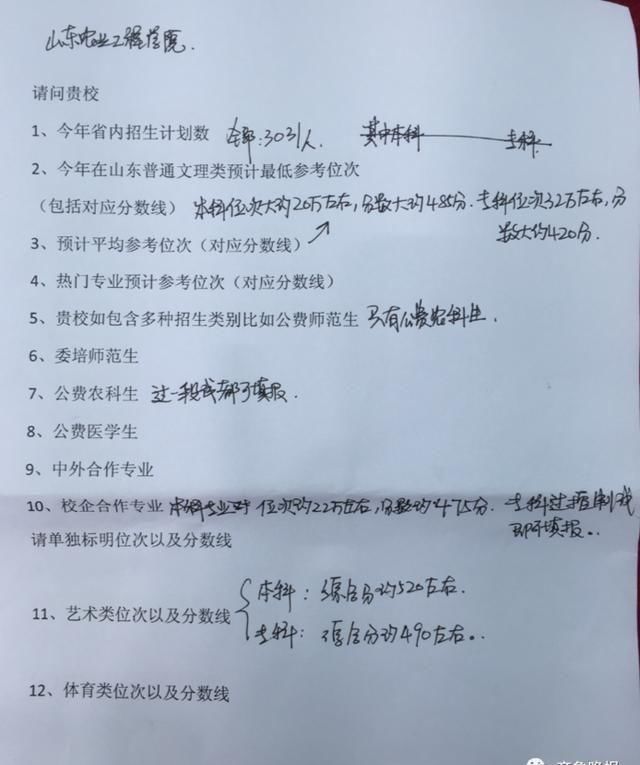 山东农业工程学院.
请问贵校
1、今年省内招生计划数 全部:3031人 其中本科 专科
2、今年在山东普通文理类预计最低参考位次
（包括对应分数线） 本科位次大约20万左右，分数大约485分. 专科位次32万左右，分
数大约420分.
3、预计平均参考位次（对应分数线）
4、热门专业预计参考位次（对应分数线）
5、贵校如包含多种招生类别比如公费师范生 只有公费农科生.
6、委培师范生
7、公费农科生 过一段线都可填报.
8、公费医学生
9、中外合作专业
10、校企合作专业 本科专业 位次约22万左右，分数约475分. 专科过 线
即可填报..
请单独标明位次以及分数线
11、艺术类位次以及分数线
本科：综合分约520左右.
专科：综合分约490左右..
12、体育类位次以及分数线
齐鲁晚报